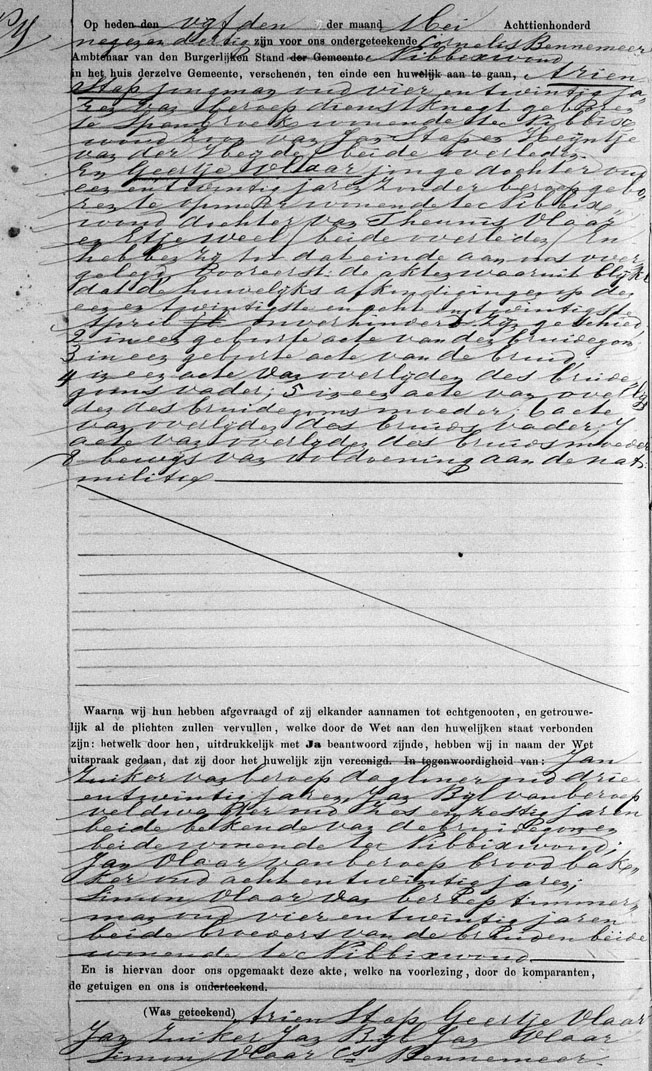 Op heden den vyfden der maand Mei Achttienhonderd
negen en dertig zijn voor ons ondergeteekende Cornelis Bennemeer
Ambtenaar van den Burgerlijken Stand der Gemeente Nibbixwoud
in het huis derzelve Gemeente, verschenen, ten einde een huwelijk aan te gaan, Arien
Stap jongman oud vier en twintig ja„
ren van beroep dienstknegt geboren
te Spanbroek wonende te Nibbix„
woud zoon van Jan Stap en Heijntje
van der Heyden beide overleden
En Geertje Vlaar jonge dochter oud
een en twintig jaren zonder beroep gebo„
ren te Opmeer wonende te Nibbix„
woud dochter van Theunis Vlaar
en Etje Weel beide overleden En
hebben zij tot dat einde aan ons over„
gelegd Vooreerst: de akten waaruit blijkt
dat de huwelijks afkondigingen op den
een en twintigste en acht en twintigste
April onverhinderd zijn geschied
2 in een geboorte acte van den bruidegom
3 in een geboorte acte van de bruid
4 in een acte van overlijden des bruide„
goms vader; 5 in een acte van overlij„
den des bruidegoms moeder; 6 acte
van overlijden des bruids vader; 7
acte van overlijden des bruids moeder
8 bewijs van voldoening aan de nat:
militie
Waarna wij hun hebben afgevraagd of zij elkander aannamen tot echtgenooten, en getrouwe-
lijk al de plichten zullen vervullen, welke door de Wet aan den huwelijken staat verbonden
zijn: hetwelk door hen, uitdrukkelijk met Ja beantwoord zijnde, hebben wij in naam der Wet
uitspraak gedaan, dat zij door het huwelijk zijn vereenigd. In tegenwoordigheid van: Jan
Zuiker van beroep dagloner oud drie
en twintig jaren, Jan Byl van beroep
veldwachter oud zes en zestig jaren
beide bekende van de bruidegom en
beide wonende te Nibbixwoud;
Jan Vlaar van beroep broodbak„
ker oud acht en twintig jaren;
Simon Vlaar van beroep timmer„
man oud vier en twintig jaren
beide broeders van de bruid en beide
wonende te Nibbixwoud
En is hiervan door ons opgemaakt deze akte, welke na voorlezing, door de komparanten,
de getuigen en ons is onderteekend.
(Was geteekend) Arien Stap Geertje Vlaar
Jan Zuiker Jan Byl Jan Vlaar
Simon Vlaar Cs Bennemeer